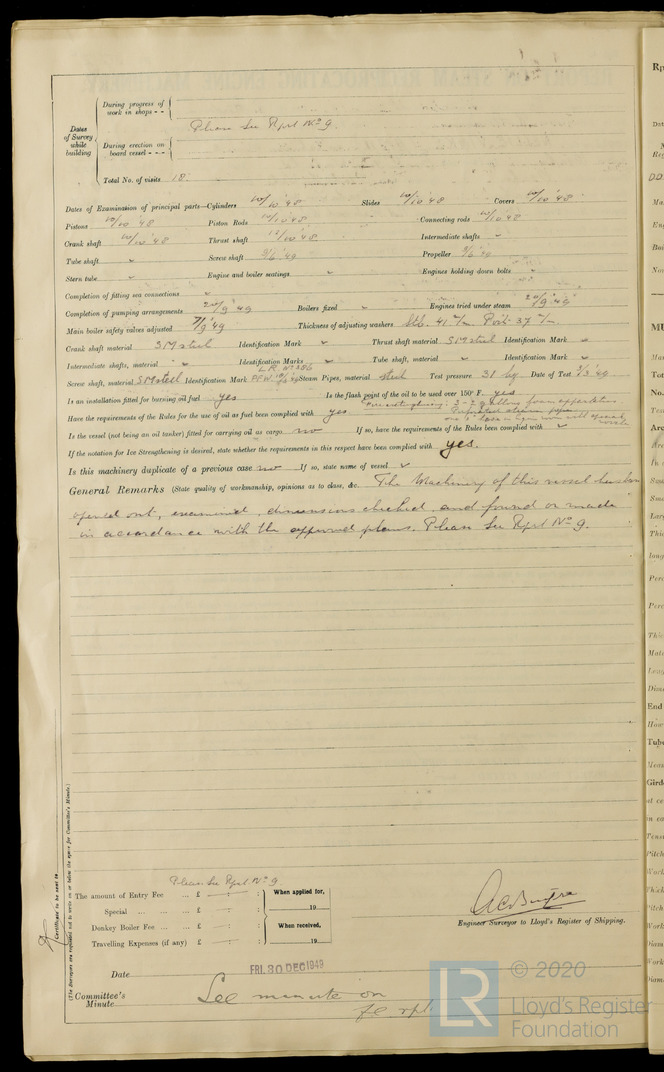 During progress of work in shops - -
Dates of Survey while building
Please See Rprt No 9
During erection on board vessel - - -
Total No. of visits 18.
Dates of Examination of principal parts—Cylinders 20/10 '48 Slides 20/10 '48 Covers 20/10 '48
Pistons 20/10 '48 Piston Rods 20/10 48 Connecting rods 20/10 48
Crank shaft 20/10 '48 Thrust shaft /10 '48 Intermediate shafts ✓
Tube shaft ✓ Screw shaft 9/6 '49 Propeller 9/6 '49
Stern tube ✓ Engine and boiler seatings ✓ Engines holding down bolts ✓
Completion of fitting sea connections ✓
Completion of pumping arrangements 20/9 '49 Boilers fixed ✓ Engines tried under steam 20/9 '49
Main boiler safety valves adjusted 7/9 '49 Thickness of adjusting washers Stb. 41 m/m Port 37 m/m
Crank shaft material S M steel Identification Mark ✓ Thrust shaft material S M steel Identification Mark ✓
Intermediate shafts, material ✓ Identification Marks ✓ Tube shaft, material ✓ Identification Mark ✓
Screw shaft, material S M steel Identification Mark LR No 386 Steam Pipes, material steel Test pressure 31 kg Date of Test 3/3 '49
Is an installation fitted for burning oil fuel yes Is the flash point of the oil to be used over 150° F. yes
2 gallons foam apparatus
Have the requirements of the Rules for the use of oil as fuel been complied with yes
Is the vessel (not being an oil tanker) fitted for carrying oil as cargo no If so, have the requirements of the Rules been complied with ✓
If the notation for Ice Strengthening is desired, state whether the requirements in this respect have been complied with yes.
Is this machinery duplicate of a previous case no If so, state name of vessel ✓
General Remarks (State quality of workmanship, opinions as to class, &c. The Machinery of this vessel has been
opened out, examined, dimensions checked, and found or made
in accordance with the approved plans. Please See Rprt No 9.
(The Surveyors are requested not to write on or below the space for Committee's Minute.)
Certificate to be sent to
Please See Rprt No 9
The amount of Entry Fee ... £ : : When applied for,
Special ... ... ... £ : : 19
Donkey Boiler Fee ... ... £ : : When received,
Travelling Expenses (if any) £ : : 19
Engineer Surveyor to Lloyd's Register of Shipping.
Date FRI. 30 DEC 1949
Committee's Minute See minute on
FE rpt.
LR
© 2020
Lloyd's Register
Foundation